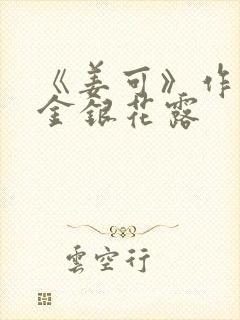 《姜可》作
金銀花露
雲空行